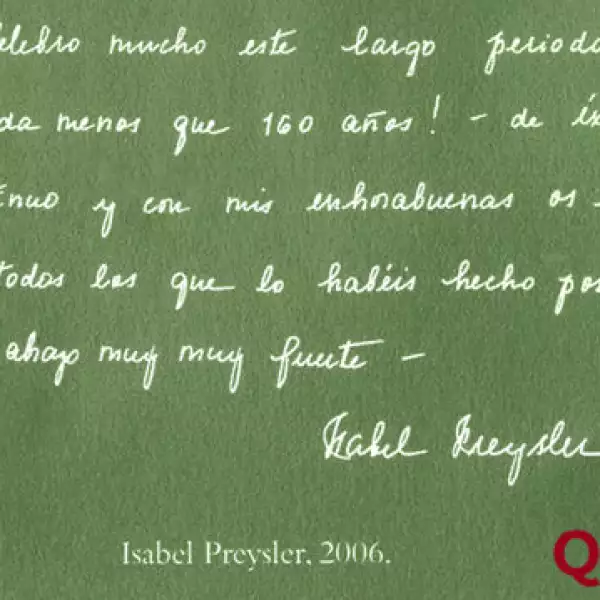 elebro mucho este largo periodo
da menos que 160 años! - de éx
énuo y con mis enhorabuenas os
todos los que lo habéis hecho pos
abazo muy muy fuerte -
Isabel Preysler
Isabel Preysler, 2006.
Q